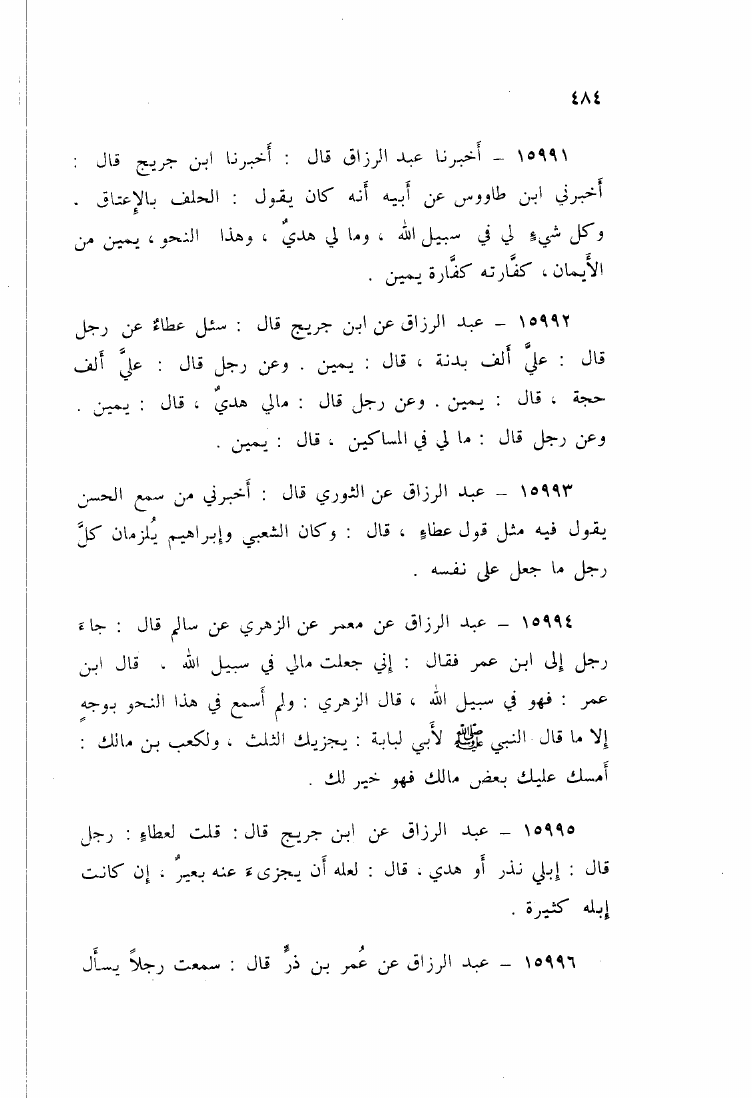 ٤٨٤
١٥٩٩١ – أخبرنا عبد الرزاق قال : أخبرنا ابن جريج قال :
أخبرني ابن طاووس عن أبيه أنه كان يقول : الحلف بالإعتاق .
وكل شيءٍ لي في سبيل الله ، وما لي هديٌ ، وهذا النحو ، يمين من
الأَيمان ، كفَّارته كفَّارة يمين .
١٥٩٩٢ – عبد الرزاق عن ابن جريج قال : سئل عطاءٌ عن رجل
قال : عليَّ ألف بدنة ، قال : يمين . وعن رجل قال : عليَّ ألف
حجة ، قال : يمين . وعن رجل قال : مالي هديٌ ، قال : يمين .
وعن رجل قال : ما لي في المساكين ، قال : يمين .
١٥٩٩٣ – عبد الرزاق عن الثوري قال : أخبرني من سمع الحسن
يقول فيه مثل قول عطاءٍ ، قال : وكان الشعبي وإبراهيم يُلزمان كلَّ
رجل ما جعل على نفسه .
١٥٩٩٤ – عبد الرزاق عن معمر عن الزهري عن سالم قال : جاءَ
رجل إلى ابن عمر فقال : إني جعلت مالي في سبيل الله . قال ابن
عمر : فهو في سبيل الله ، قال الزهري : ولم أسمع في هذا النحو بوجهٍ
إلا ما قال النبي ﷺ لأبي لبابة : يجزيك الثلث ، ولكعب بن مالك :
أمسك عليك بعض مالك فهو خير لك .
١٥٩٩٥ – عبد الرزاق عن ابن جريج قال : قلت لعطاءٍ : رجل
قال : إبلي نذر أو هدي ، قال : لعله أن يجزىءَ عنه بعيرٌ ، إن كانت
إبله كثيرة .
١٥٩٩٦ – عبد الرزاق عن عُمر بن ذرٍّ قال : سمعت رجلاً يسأل